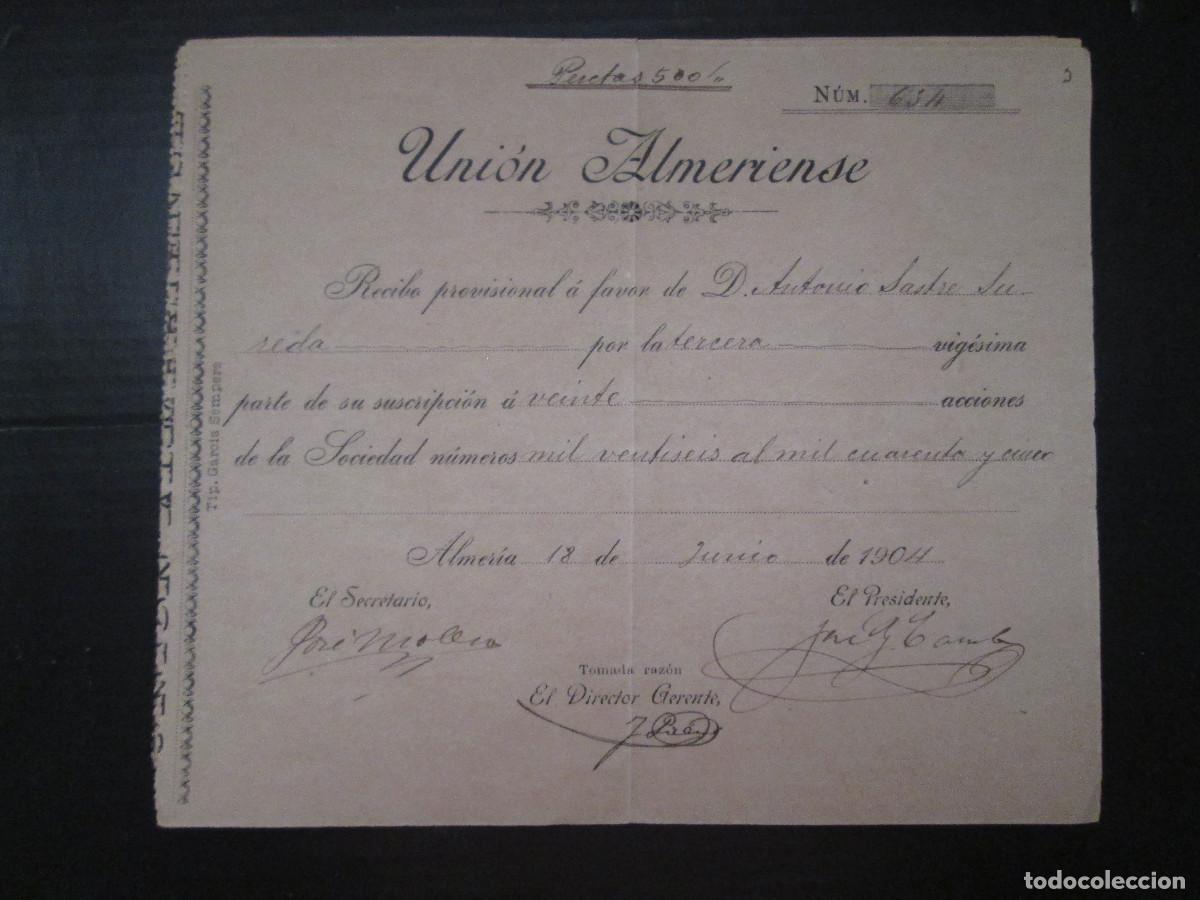 Pesetas 500/"
NÚM. 634
Unión Almeriense
Recibo provisional á favor de D. Antonio Sastre Su-
reda por la tercera vigésima
parte de su suscripción á veinte acciones
de la Sociedad números mil ventiseis al mil cuarenta y cinco
Almería 18 de Junio de 1904
El Secretario,
El Presidente,
José
José
Tomada razón
El Director Gerente,
J.
Tip. García Sempere
todocoleccion